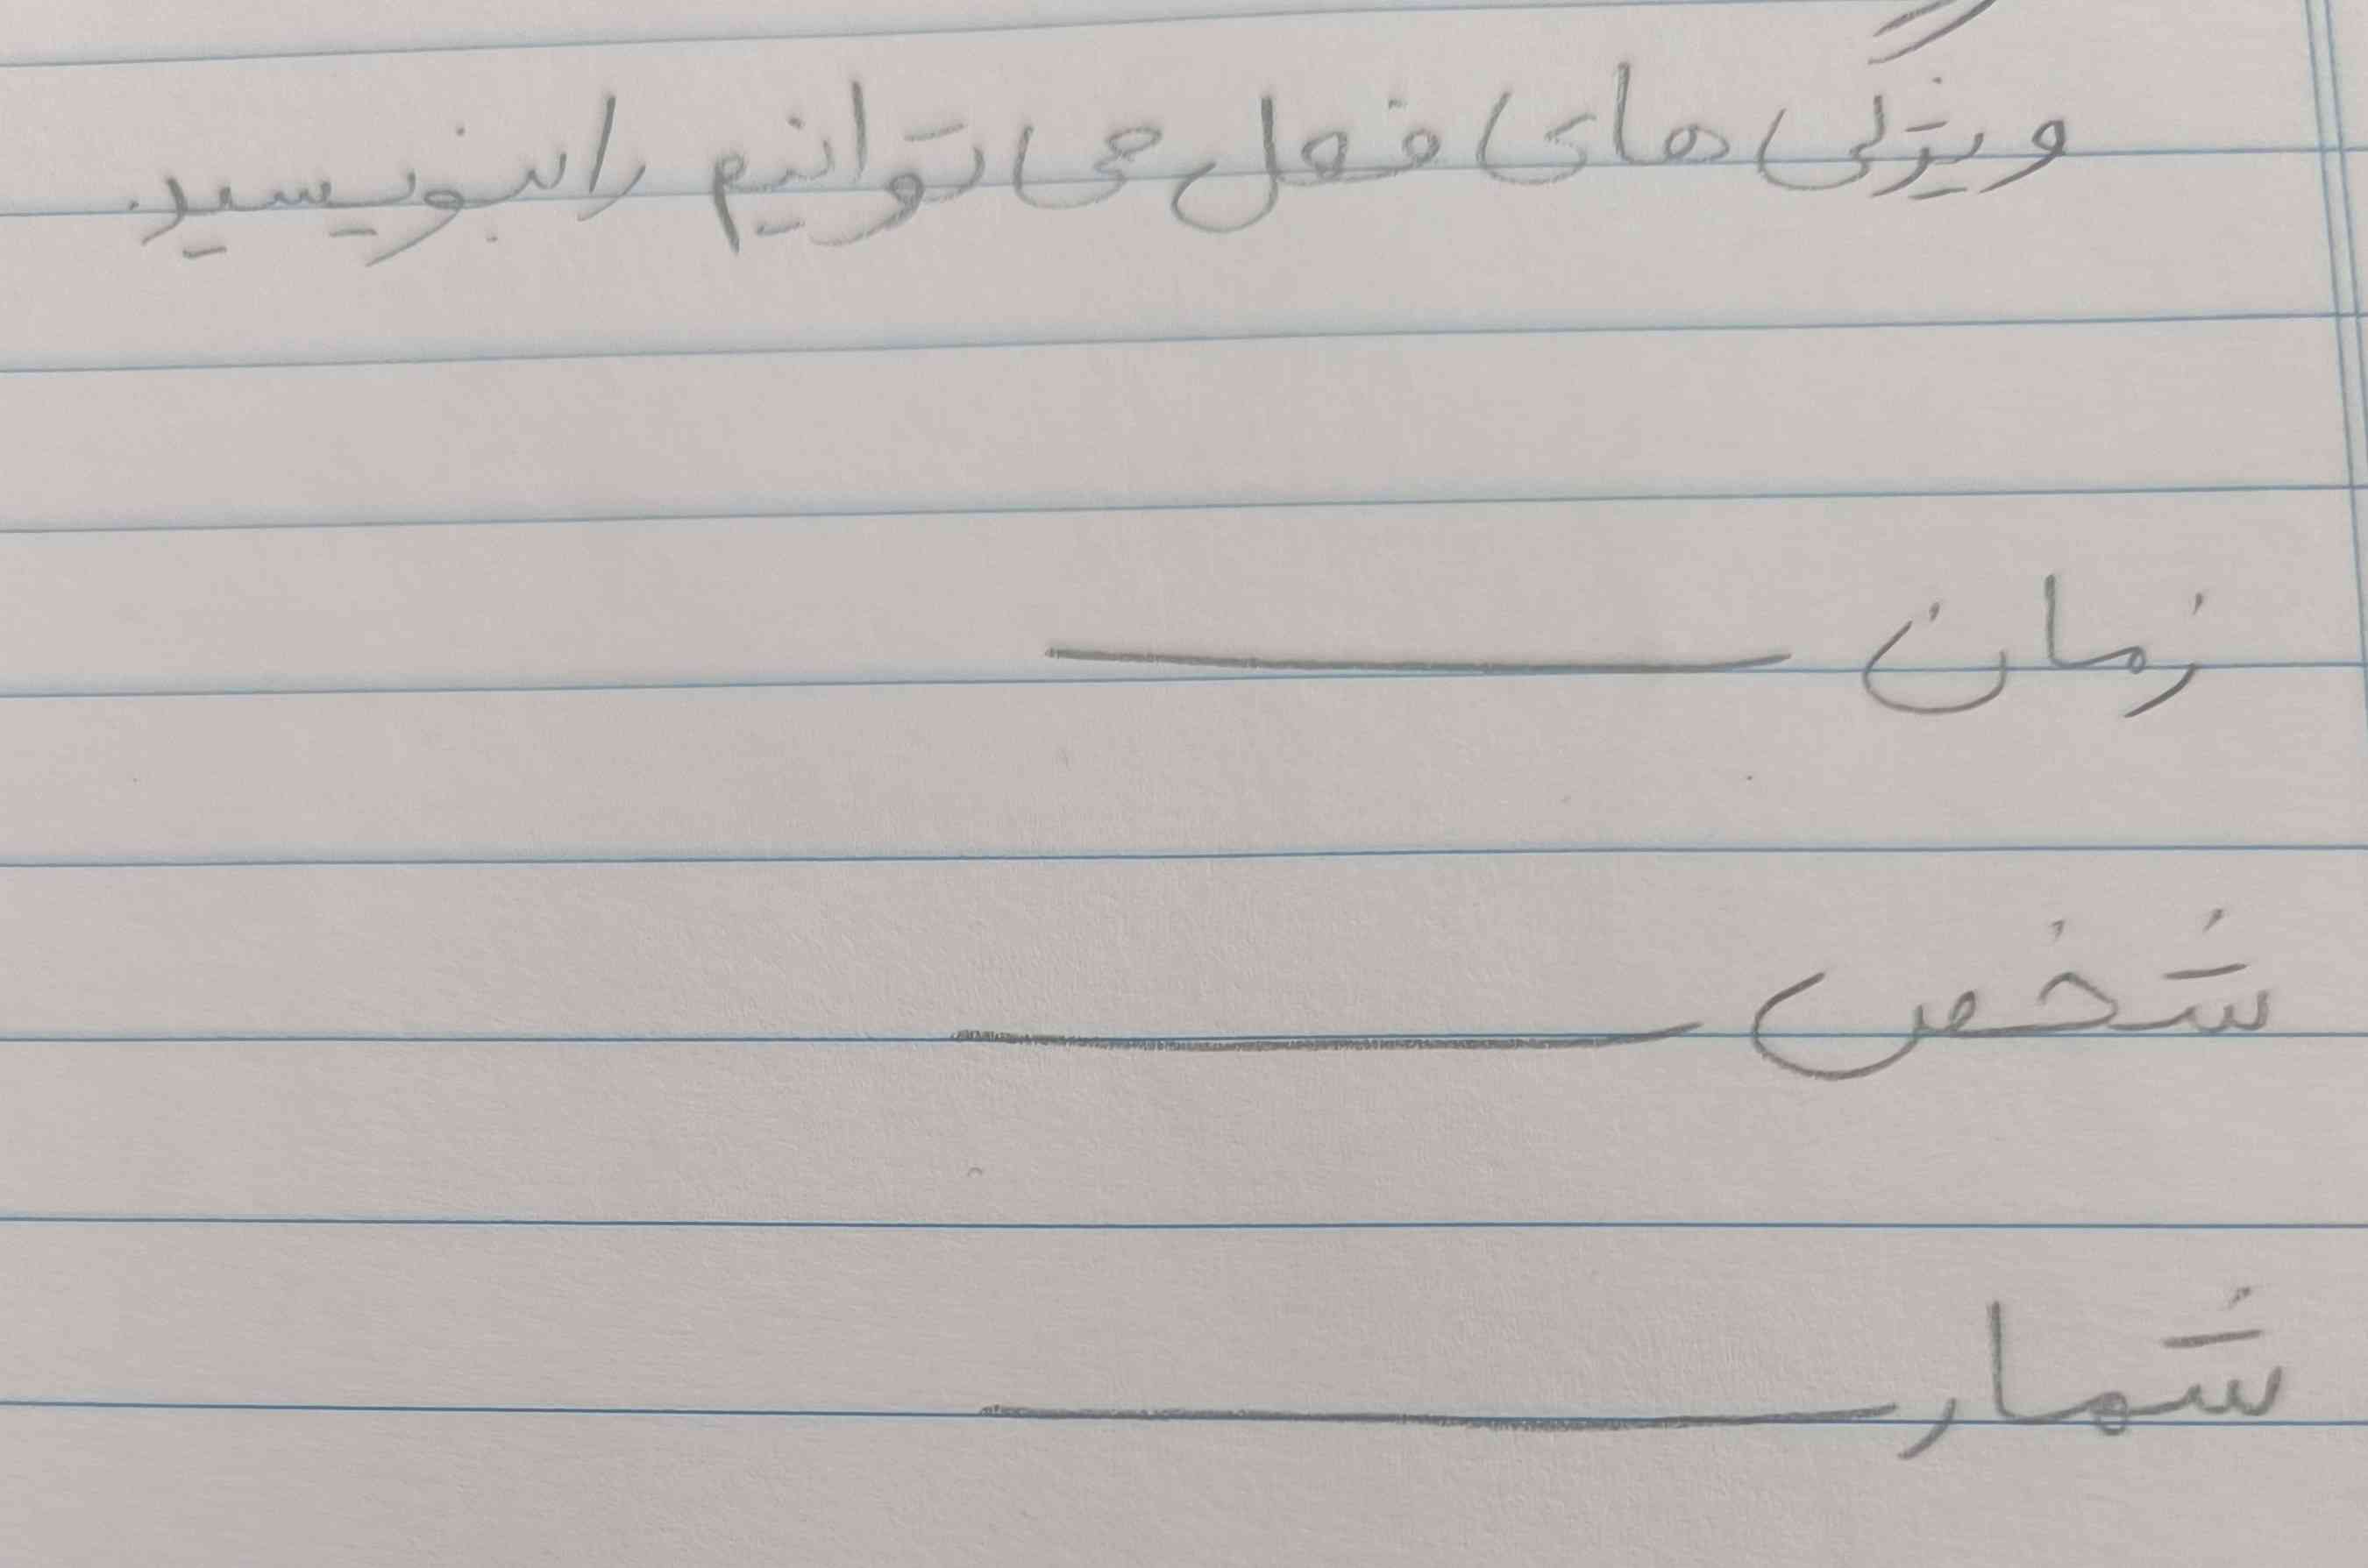 ویژگی های فعل می توانیم را بنویسید.
زمان
شخص
شمار